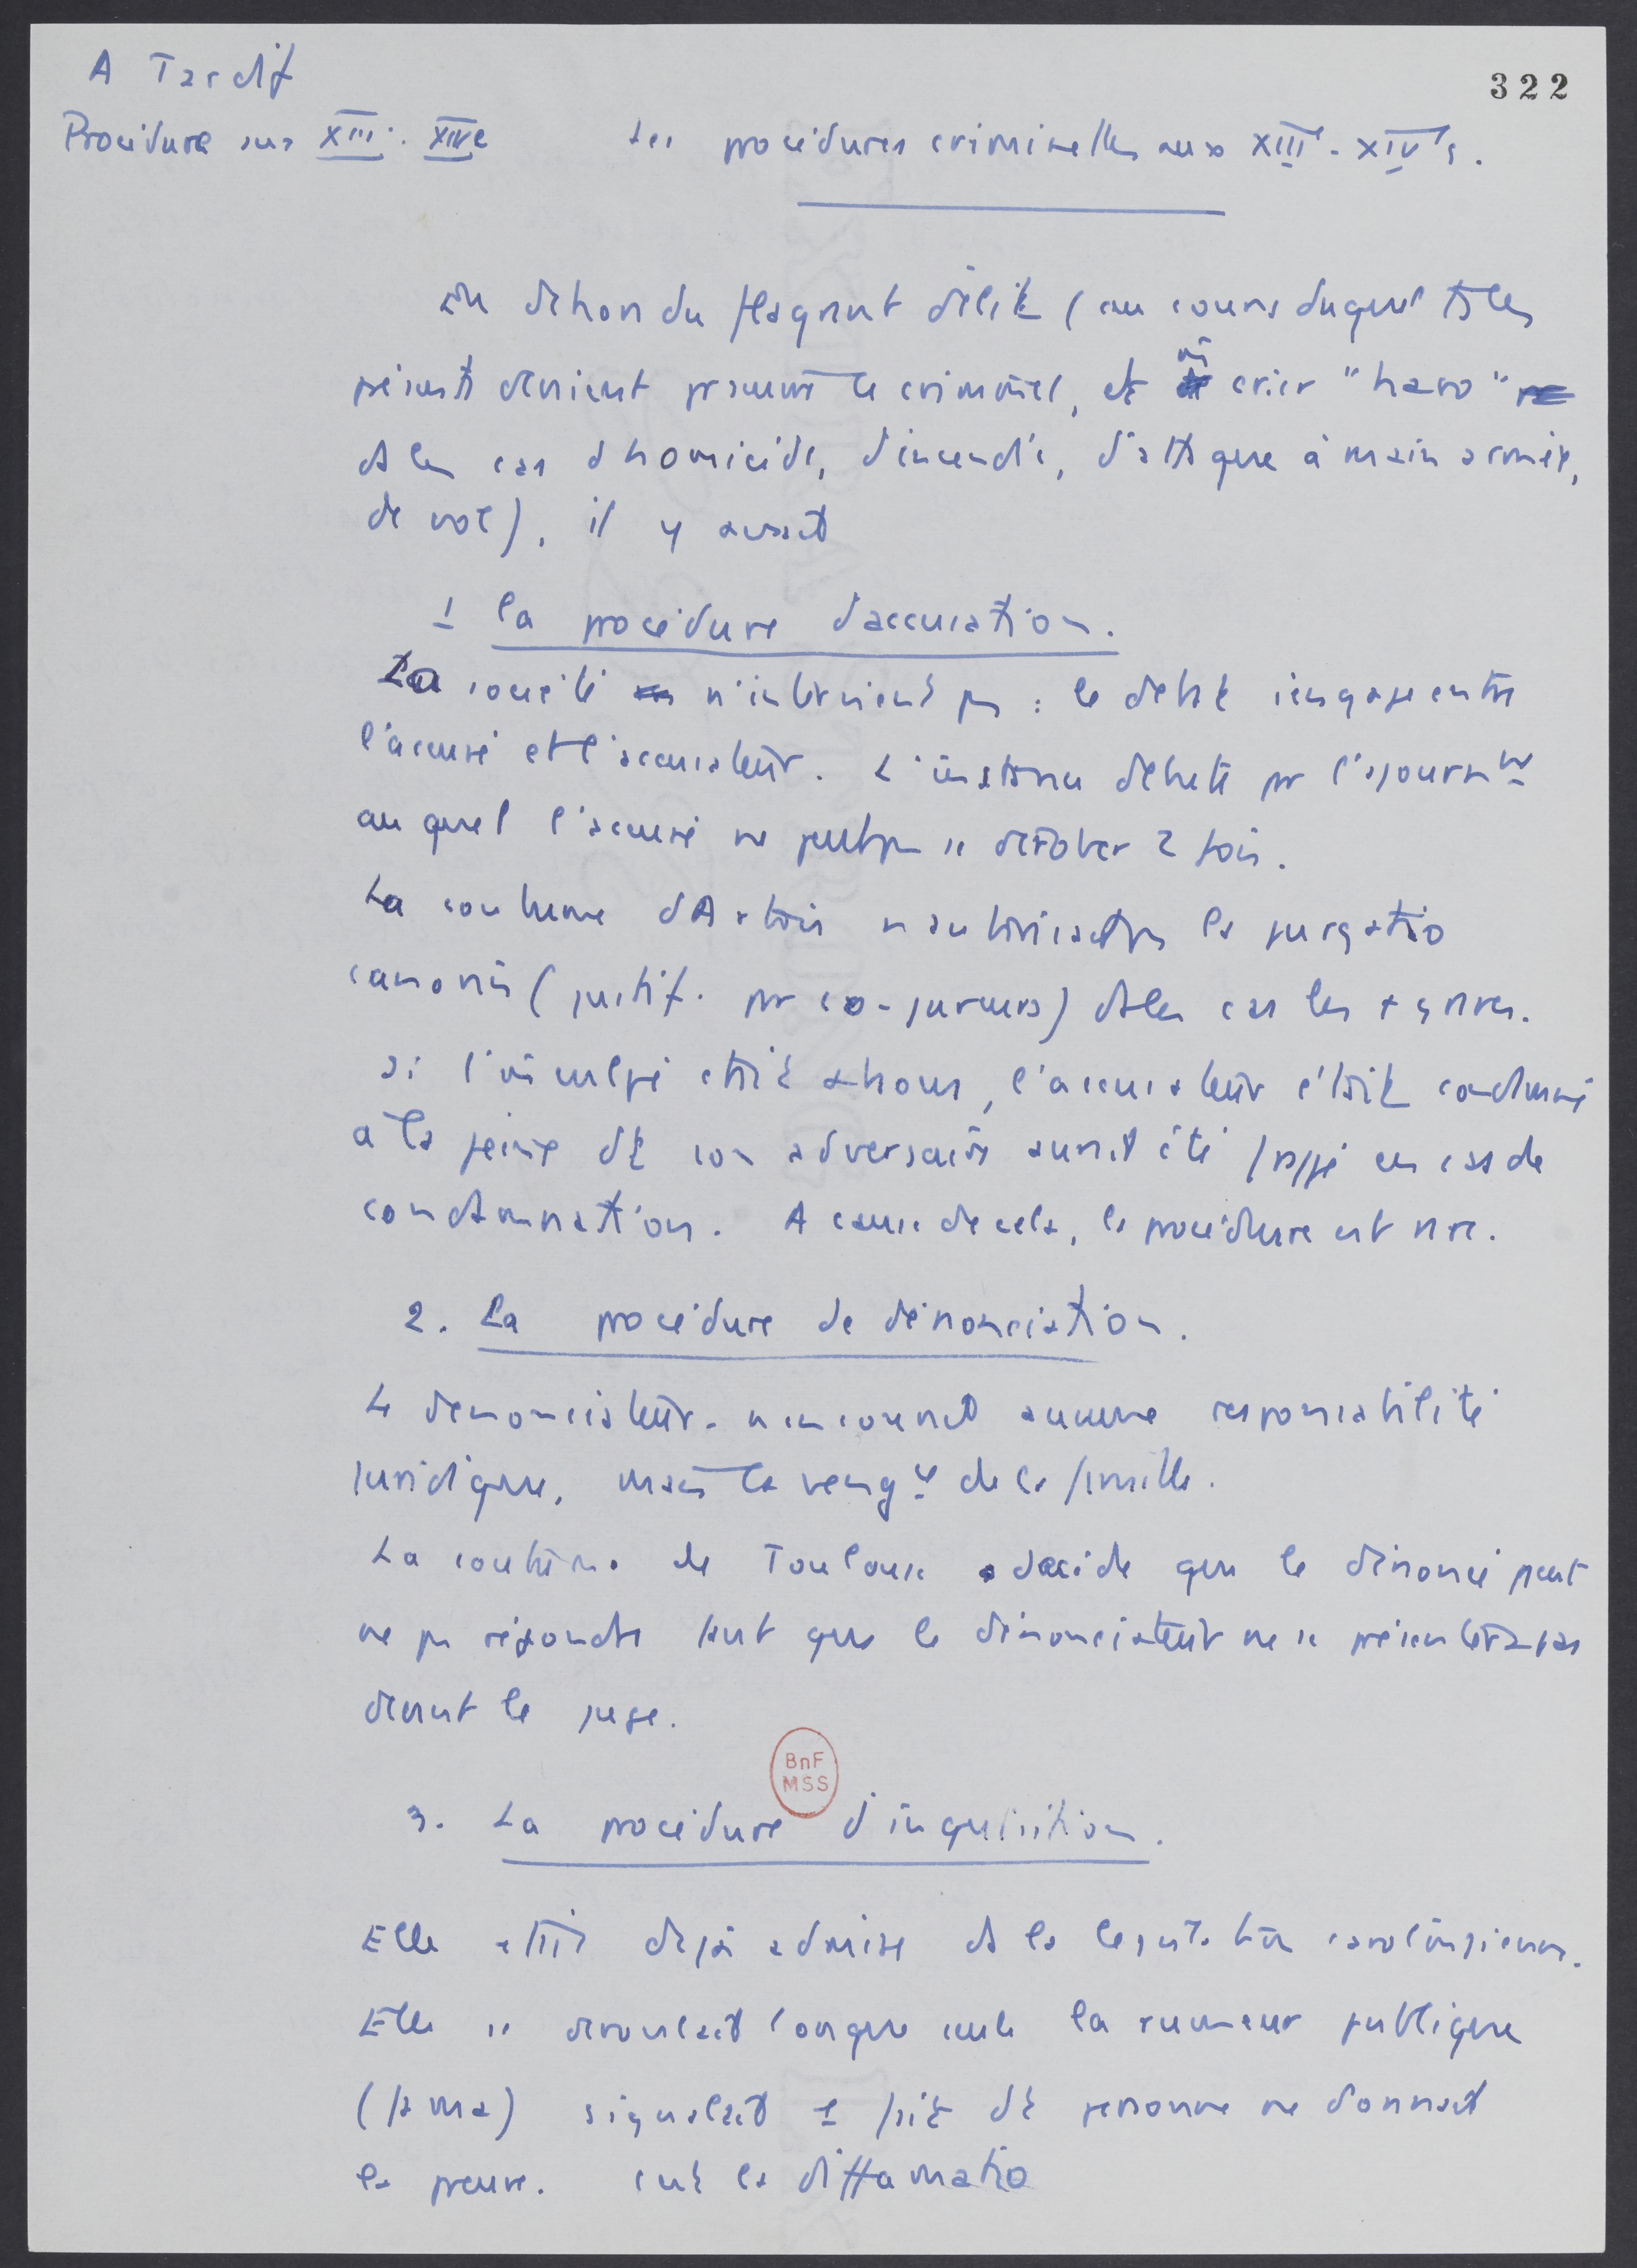 A Tardif
322
Procédure aux XIIIe. XIVe
Les procédures criminelles aux XIII - XIV s.
En dehors du flagrant délit (au cours duquel ts les
présents devient poursuivre le criminel, et crier "haro"
ds les cas d'homicide, d'incendie, d'attaque à main armée,
de vol), il y avait
1 la procédure d'accusation.
La société n'intervient pas : le débat s'engage entre
l'accusé et l'accusateur. L'instance débute par l'ajournt
auquel l'accusé ne peut pas se dérober 2 fois.
La coutume d'Artois n'autorisait pas la purgatio
canonis (justif. par co-jureurs) ds les cas les + graves.
Si l'inculpé était absous, l'accusateur était condamné
à la peine dt son adversaire aurait été frappé en cas de
condamnation. A cause de cela, la procédure est rare.
2. La procédure de dénonciation.
Le dénonciateur n'encourait aucune responsabilité
juridique, mais la veng ce de la famille.
La coutume de Toulouse décide que le dénoncé peut
ne pas répondre tant que le dénonciateur ne se présentera pas
devant le juge.
BnF
MSS
3. La procédure d'inquisition.
Elle était déjà admise ds la législation carolingienne.
Elle se déroulait lorsque seule la rumeur publique
(fama) signalait 1 fait dt personne ne donnait
la preuve. c'est la diffamatio